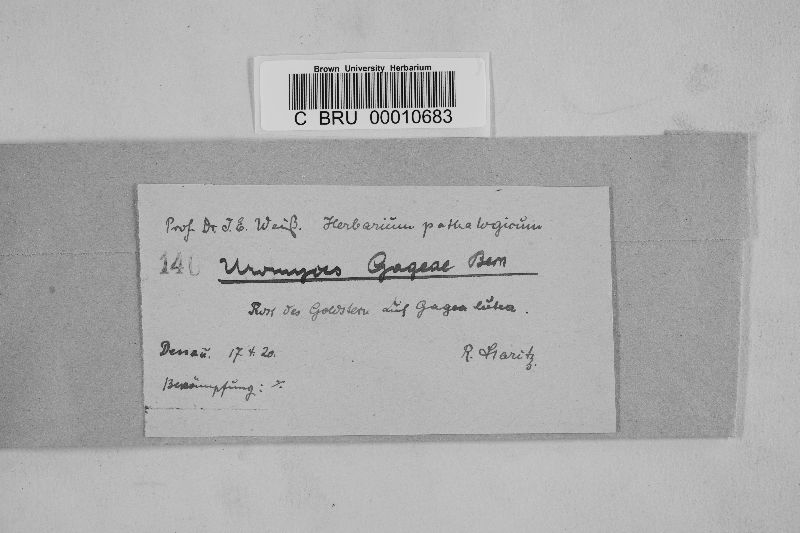 Brown University Herbarium
C BRU 00010683
Prof. Dr. J. E. Weiß. Herbarium pathologicum
140 Uromyces Gageae Bern
Rost des Goldstern auf Gagea lutea.
Dessau. 17.4.20. R. Staritz
Bekämpfung: ./.